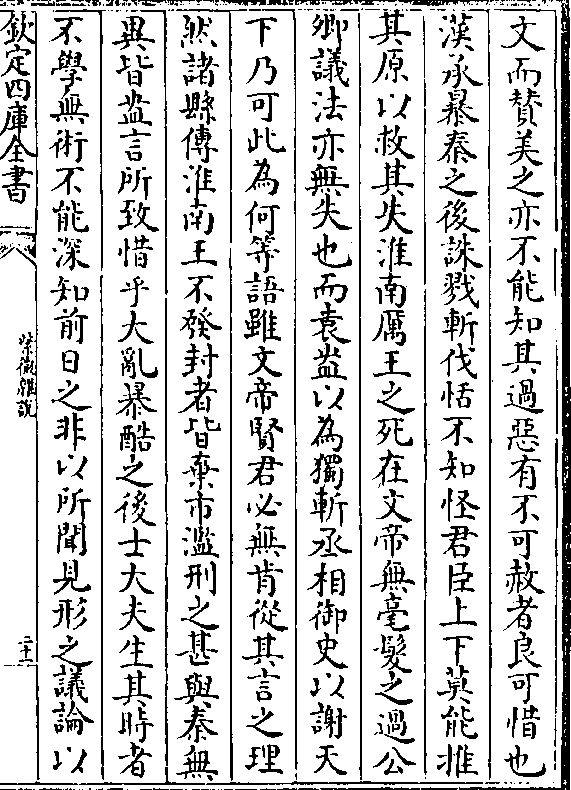 文而賛美之亦不能知其過惡有不可赦者良可惜也
漢承暴秦之後誅戮斬伐恬不知怪君臣上下莫能推
其原以救其失淮南厲王之死在文帝無毫髮之過公
卿議法亦無失也而袁盎以為獨斬丞相御史以謝天
下乃可此為何等語雖文帝賢君必無肯從其言之理
然諸縣傳淮南王不發封者皆棄市濫刑之甚與秦無
異皆盎言所致惜乎大亂暴酷之後士大夫生其時者
不學無術不能深知前日之非以所聞見形之議論以
欽定四庫全書
紫微雜說
二十一